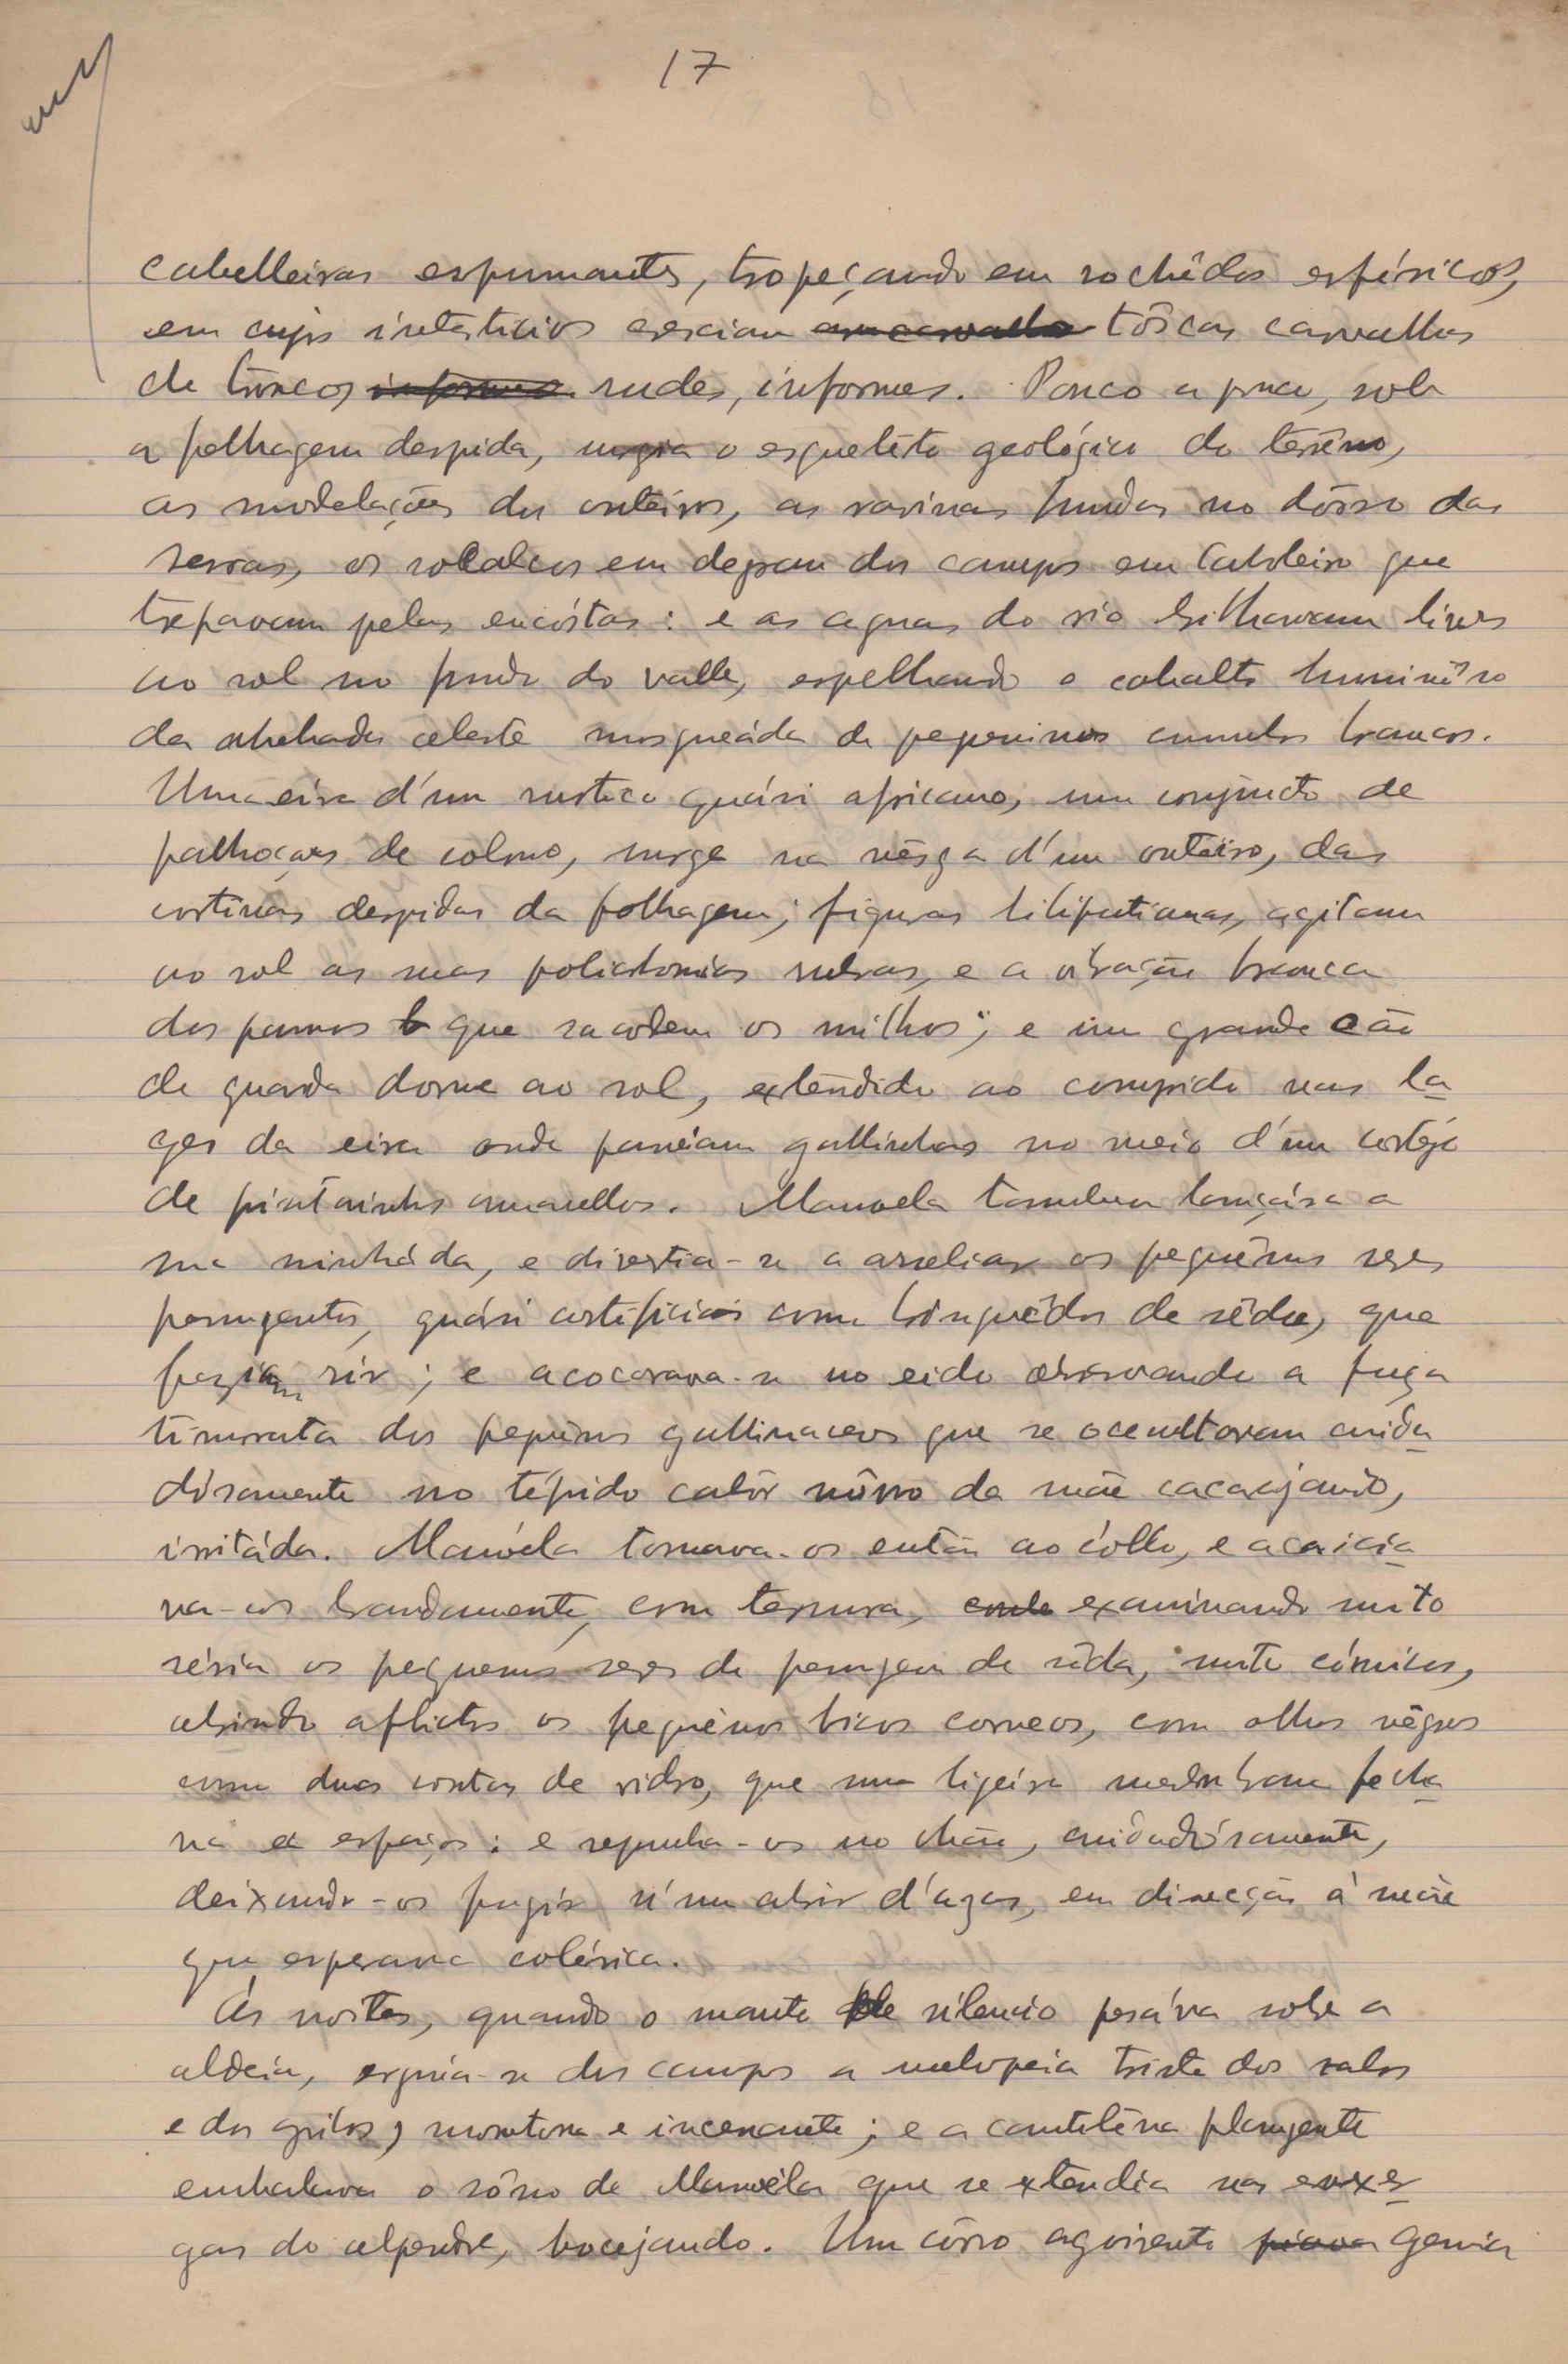 17
cabelleiras espumantes, tropeçando em rochêdos esféricos,
em cujos interticios cresciam tôscos carvalhos
de troncos informes rudes, informes. Pouco a pouco, sob
a folhagem despida, surgia o esqueleto geológico do terrêno,
as modelações dos outeiros, as ravinas fundas no dôrso das
serras, os socalcos em degrau dos campos em taboleiro que
trepavam pelas encóstas: e as aguas do rio brilhavam livres
ao sol no fundo do valle, espelhando o cobalto luminôso
da abobada celeste mosqueáda de pequeninos cumulos brancos.
Uma eira d'um rustico quási africano, um conjuncto de
palhoças de colmo, surge na nêsga d'um outeiro, das
cortinas despidas da folhagem; figuras liliputianas, agitam
ao sol as suas policromias rubras, e a vibração branca
dos pannos que sacodem os milhos; e um grande cão
de guarda dorme ao sol, extendido ao comprido nas la
ges da eira onde passéiam gallinhas no meio d'um cortejo
de pintainhos amarellos. Manuela tambem lançára a
sua ninháda, e divertia-se a assediar os pequênos seres
penugentos, quási artificiais como brinquêdos de sêda, que
faziam rir; e acocorava-se no eido observando a fuga
timorata dos pequênos gallinaceos que se occultavam cuida
dósamente no tépido calôr nôvo da mãe cacarejando,
irritáda. Manuéla tomava-os então ao cóllo, e acaricia
va-os brandamente, com ternura, examinando muito
séria os pequenos seres de penugem de sêda, muito cómicos,
abrindo aflictos os pequênos bicos corneos, com olhos nêgros
como duas contas de vidro, que uma ligeira membrana fecha
va a espaços: e repunha-os no chão, cuidadósamente,
deixando-os fugir n'um abrir d'azas, em direcção á mãe
que esperava colérica.
Ás noites, quando o manto de silencio pesáva sobre a
aldeia, erguia-se dos campos a melopeia triste dos ralos
e dos grilos, monotona e incessante; e a cantiléna plangente
embalava o sôno de Manuéla que se extendia nas enxer
gas do alpendre, bocejando. Um côrvo agoirento piava gemia